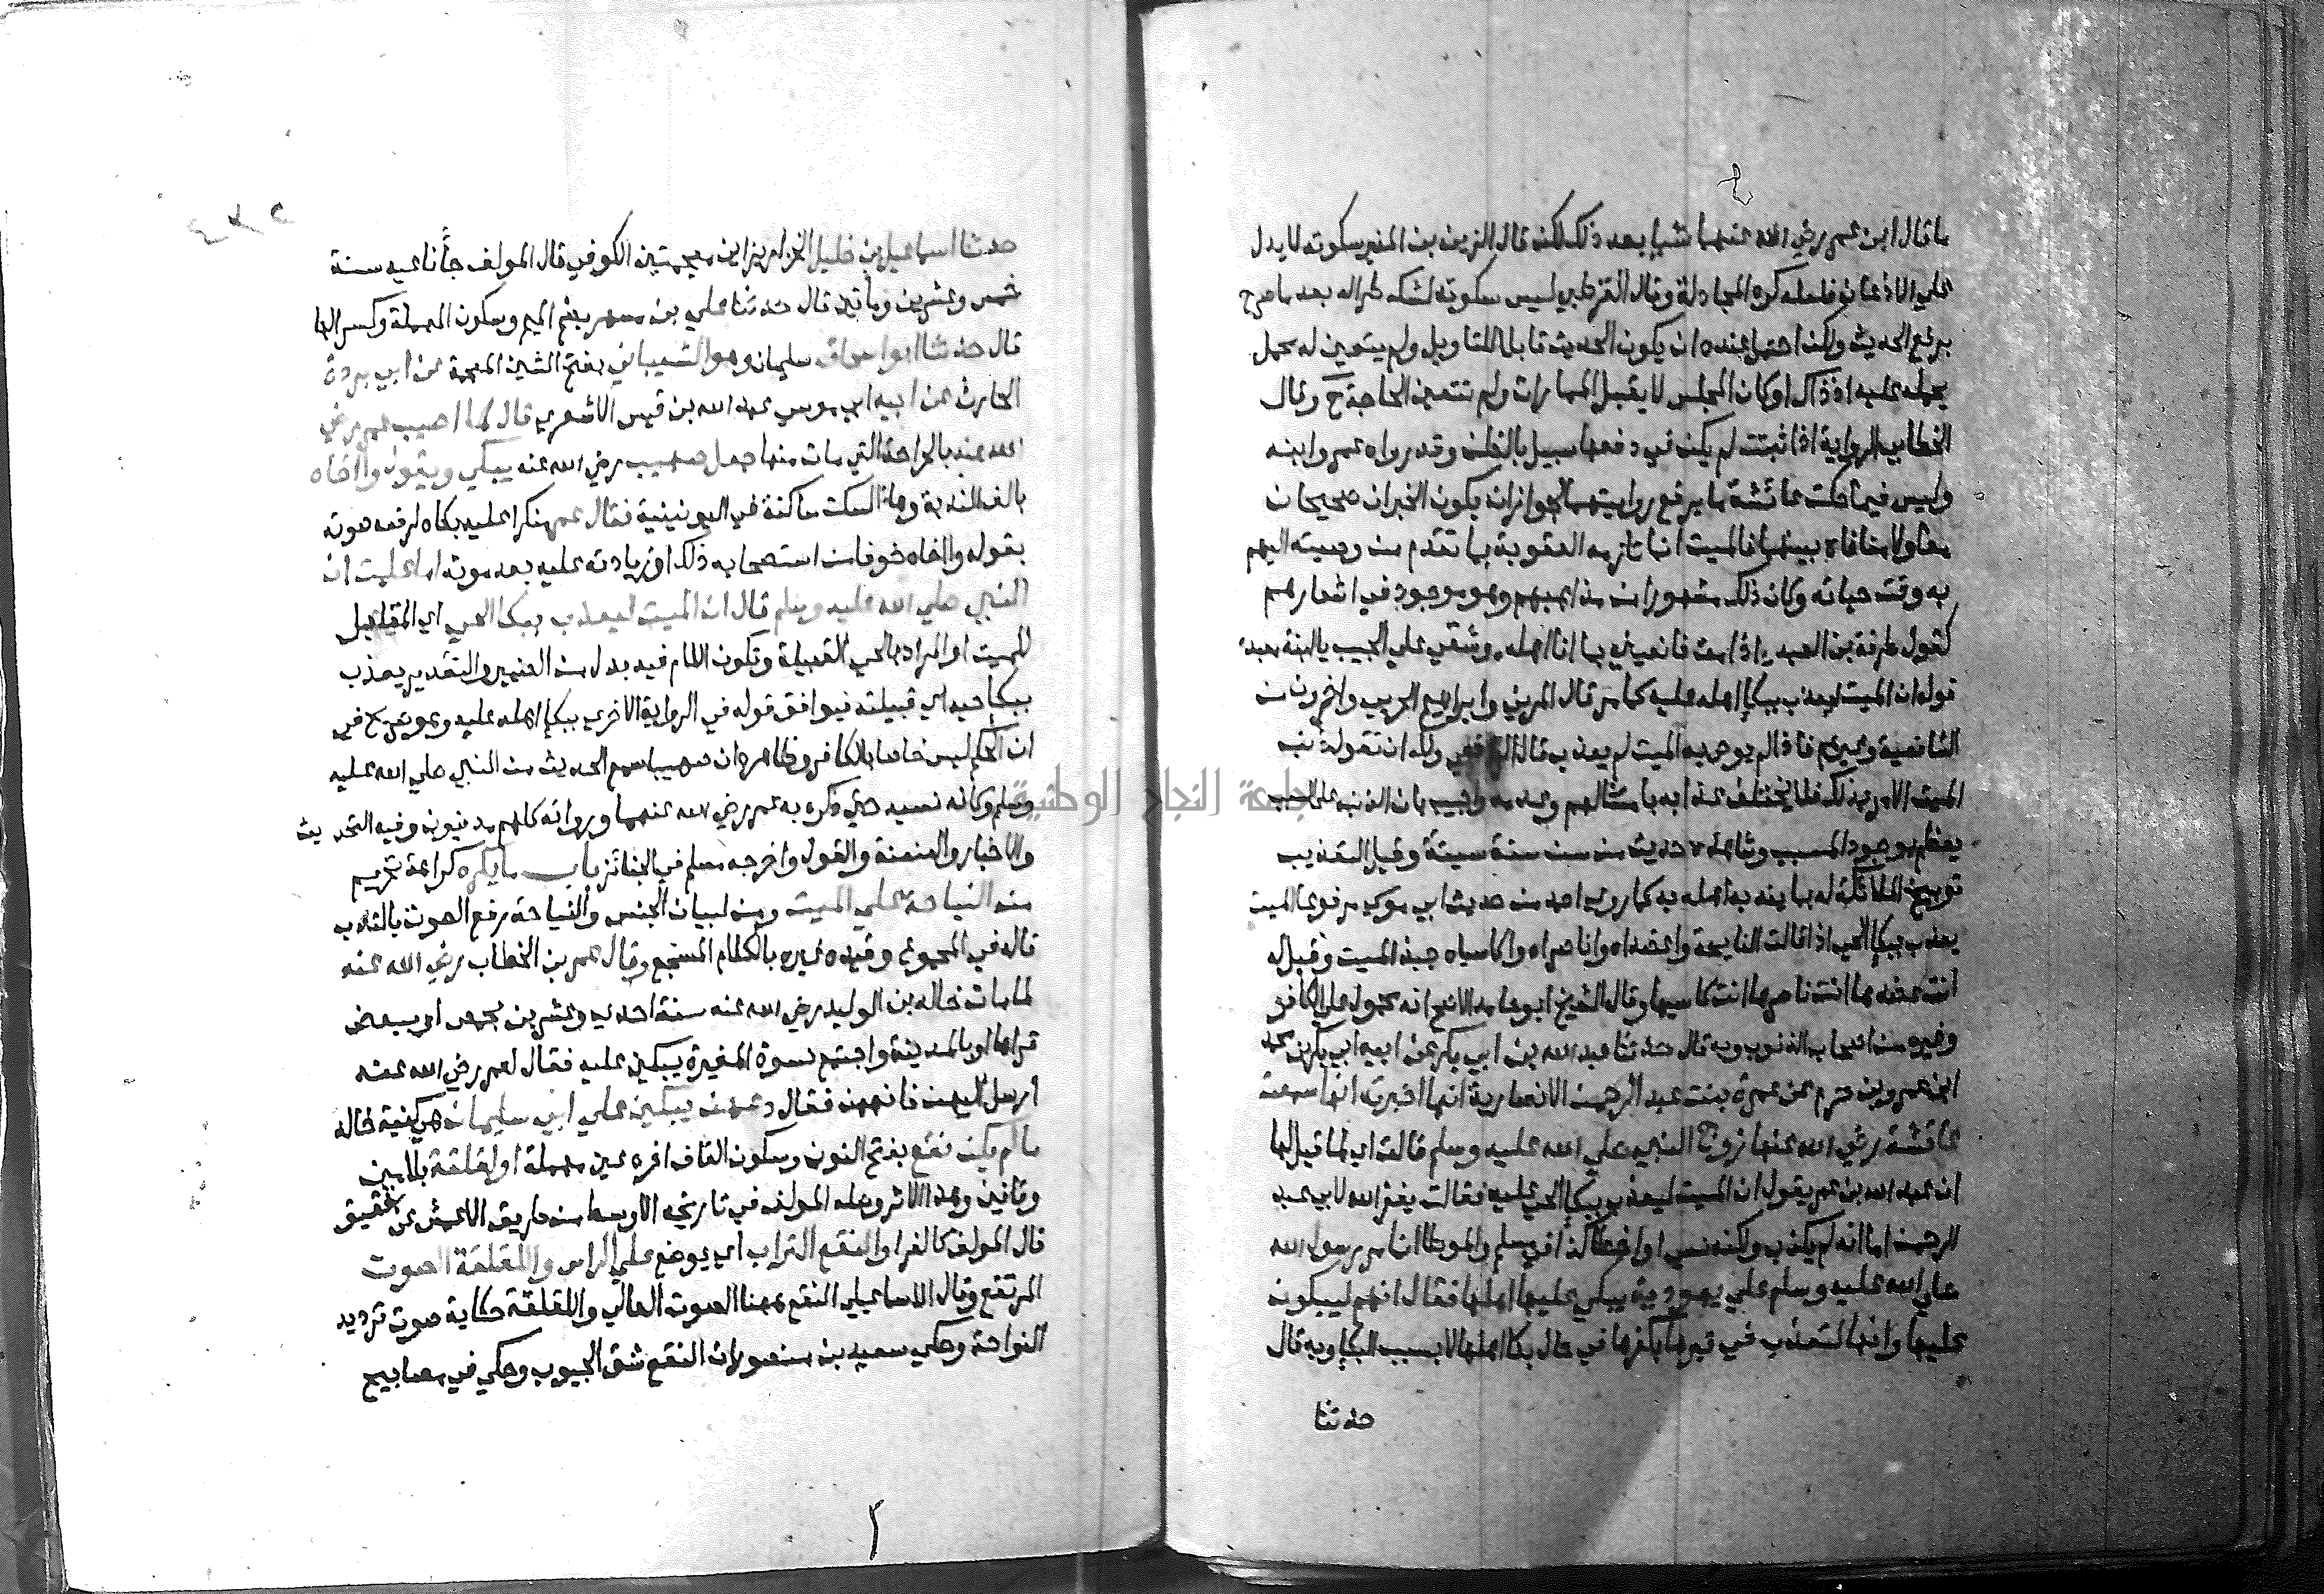 ما قال ابن عمر رضي الله عنهما شيا بعد ذلك لكن قال الزين بن المنير سكوته لا يدل
علي الاذعان فلعله كره المجادلة وقال القرطبي ليس سكوته لشك طرا له بعد ما صرح
برفع الحديث ولكن احتمل عنده ان يكون الحديث قابلا للتاويل ولم يتعين له محمل
يحمله عليه اذ ذاك او كان المجلس لا يقبل المماراة ولم تتعين الحاجة ح وقال
الخطابي الرواية اذا ثبتت لم يكن في دفعها سبيل بالظن وقد رواه عمر وابنه
وليس فيما حكت عائشة ما يرفع روايتهما لجواز ان يكون الخبران صحيحان
معا ولا منافاة بينهما فالميت انما تلزمه العقوبة بما تقدم من وصيته اليهم
به وقت حياته وكان ذلك مشهورا من مذاهبهم وهو موجود في اشعارهم
كقول طرفة بن العبد اذا مت فانعيني بما انا اهله وشقي علي الجيب يا ابنة معبد
قوله ان الميت ليعذب ببكا اهله عليه كما مر قال المزني وابراهيم الحربي واخرون من
الشافعية وغيرهم فاذا لم يوص به الميت لم يعذب قال الرافعي ولك ان تقول ذنب
الميت الامر بذلك فلا يختلف عذابه بامتثالهم وعدمه واجيب بان الذنب علي السبب
يعظم بوجود المسبب وشاهده حديث من سن سنة سيئة وقيل التعذيب
توبيخ الملائكة له بما يندبه اهله به كما روي احمد من حديث ابي موسي مرفوعا الميت
يعذب ببكا الحي اذا قالت النايحة واعضداه واناصراه واكاسياه جبذ الميت وقيل له
انت عضدها انت ناصرها انت كاسيها وقال الشيخ ابو حامد الاصح انه محمول علي الكافر
وغيره من اصحاب الذنوب وبه قال حدثنا عبد الله بن ابي بكر عن ابيه ابي بكر بن محمد
ابن عمرو بن حزم عن عمرة بنت عبد الرحمن الانصارية انها اخبرته انها سمعت
عائشة رضي الله عنها زوج النبي صلي الله عليه وسلم قالت اي لما قيل لها
ان عبد الله بن عمر يقول ان الميت ليعذب ببكا الحي عليه فقالت يغفر الله لابي عبد
الرحمن اما انه لم يكذب ولكنه نسي او اخطا كذا في مسلم والموطا انما مر رسول الله
صلي الله عليه وسلم علي يهودية يبكي عليها اهلها فقال انهم ليبكون
عليها وانها لتعذب في قبرها بكفرها في حال بكا اهلها لا بسبب البكا وبه قال
حدثنا
حدثنا اسماعيل بن خليل الخزاز بزاين معجمتين الكوفي قال المولف جانا نعيه سنة
خمس وعشرين ومايتين قال حدثنا علي بن مسهر بضم الميم وسكون المهملة وكسر الها
قال حدثنا ابو اسحاق سليمان وهو الشيباني بفتح الشين المعجمة عن ابي بردة
الحارث عن ابيه ابي موسي عبد الله بن قيس الاشعري قال لما اصيب عمر رضي
الله عنه بالجراحة التي مات منها جعل صهيب رضي الله عنه يبكي ويقول وااخاه
بالف الندبة وهاء السكت ساكنة في اليونينية فقال عمر منكرا عليه بكاه لرفعه صوته
بقوله وااخاه خوفا من استصحابه ذلك او زيادته عليه بعد موته اما علمت ان
النبي صلي الله عليه وسلم قال ان الميت ليعذب ببكا الحي اي المقابل
للميت او المراد بالحي القبيلة وتكون اللام فيه بدل من الضمير والتقدير يعذب
ببكا حيه اي قبيلته فيوافق قوله في الرواية الاخري ببكا اهله عليه وهو صريح في
ان الحكم ليس خاصا بالكافر وظاهره ان صهيبا سمع الحديث من النبي صلي الله عليه
وسلم وكانه نسيه حتي ذكره به عمر رضي الله عنهما ورواته كلهم مدنيون وفيه التحديث
والاخبار والعنعنة والقول واخرجه مسلم في الجنائز باب ما يكره كراهة تحريم
من النياحة علي الميت ومن لبيان الجنس والنياحة رفع الصوت بالندب
قاله في المجموع وقيده غيره بالكلام المسجع وقال عمر بن الخطاب رضي الله عنه
لما مات خالد بن الوليد رضي الله عنه سنة احدي وعشرين بحمص او ببعض
قراها او بالمدينة واجتمع نسوة المغيرة يبكين عليه فقال لعمر رضي الله عنه
ارسل اليهن فانههن فقال دعهن يبكين علي ابي سليمان هي كنية خالد
ما لم يكن نقع بفتح النون وسكون القاف اخره عين مهملة او لقلقة بلامين
وقافين وهذا الاثر وصله المولف في تاريخه الاوسط من طريق الاعمش عن شقيق
قال المولف كالفرا والنقع التراب اي يوضع علي الراس واللقلقة الصوت
المرتفع وقال الاسماعيلي النقع ههنا الصوت العالي واللقلقة حكاية صوت ترديد
النواحة وحكي سعيد بن منصور ان النقع شق الجيوب وحكي في مصابيح
جامعة النجاح الوطنية